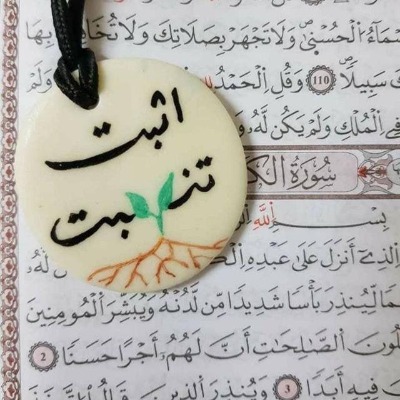 اثبت
تنبت
سماء الحسنى ولا تجهر بصلاتك ولا تخافت بها
سبيلا ١١٠ وقل الحمد لله
في الملك ولم يكن له
سورة الك
بسم الله
الذي أنزل على عبده الك
له
ما لينذر بأسا شديدا من لدنه ويبشر المؤمنين
لون الصالحات أن لهم أجرا حسنا ٢
فيه أبدا ٣ وينذر الذين قالوا اتخذ